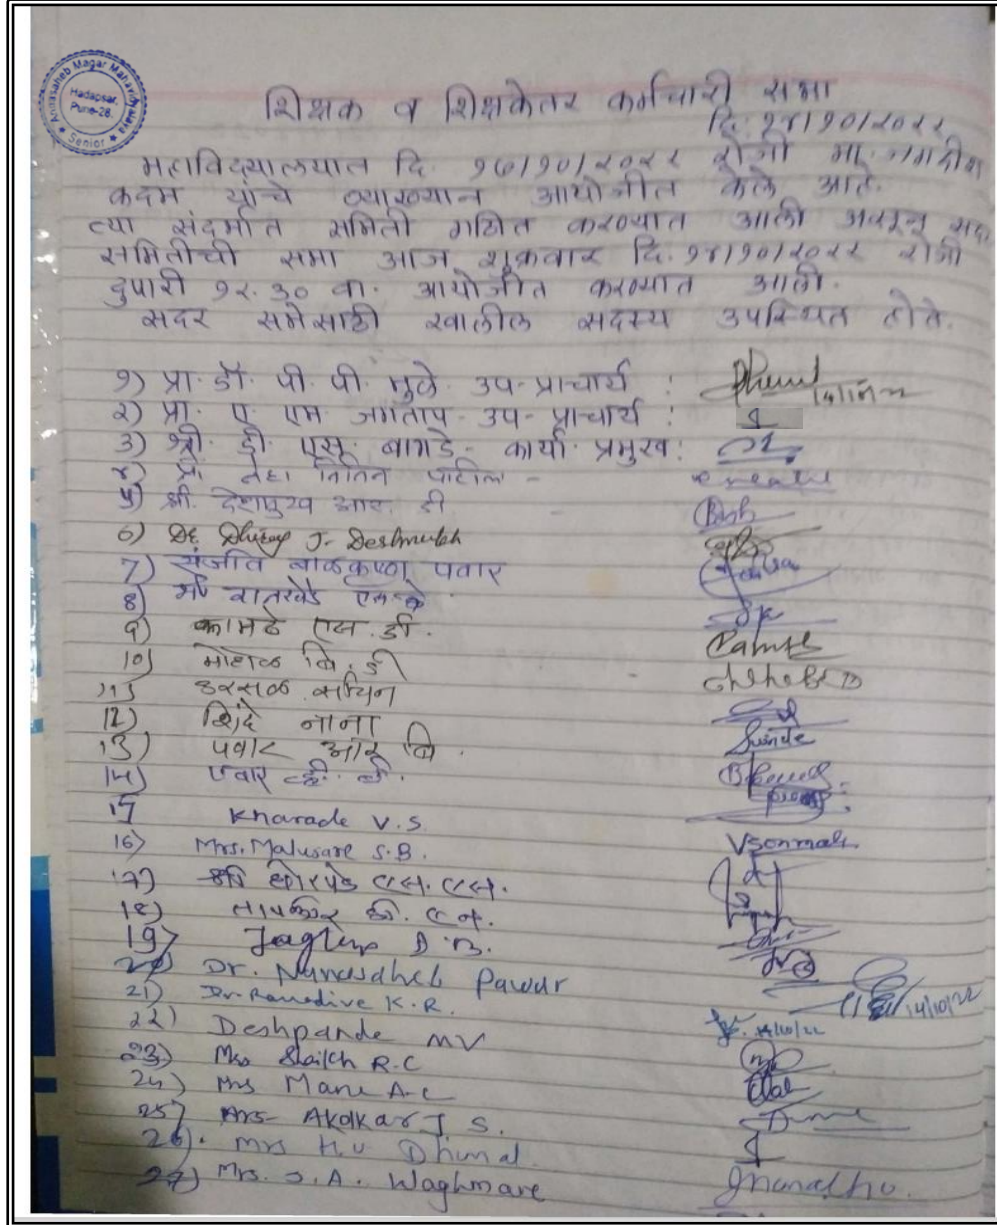 Annasaheb Magar Mahavidyalaya
Hadapsar,
Pune-28.
★ Senior ★
शिक्षक व शिक्षकेतर कर्मचारी सभा
दि: १४/१०/२०२२
महाविद्यालयात दि. १७/१०/२०२२ रोजी मा. जगदीश
कदम यांचे व्याख्यान आयोजीत केले आहे.
त्या संदर्भात समिती गठित करण्यात आली असून सदर
समितीची सभा आज शुक्रवार दि. १४/१०/२०२२ रोजी
दुपारी १२.३० वा. आयोजीत करण्यात आली.
सदर सभेसाठी खालील सदस्य उपस्थित होते.
१) प्रा. डॉ. पी. पी. मुळे उप-प्राचार्य : 14/10/22
२) प्रा. ए. एम जगताप - उप-प्राचार्य :
३) श्री. डी. एस. बागडे - कार्या. प्रमुख:
४) प्रा. नेहा नितिन पाटील -
५) श्री. देशमुख आर. डी
6) Dr. Dhiraj J. Deshmukh
7) संजीव बाळकृष्ण पवार
8)
9) कामठे एस. डी.
10) मोहोळ बि. डी
11) हरसळ सचिन
12) शिंदे नाना Shinde
13) पवार आर बि.
14) पवार व्ही. के.
15 Kharade V.S.
16) Mrs. Malusare S.B.
17) घोरपडे एस. एस.
18)
19) Jagtap D.B.
20) Dr. Nanasaheb Pawar 14/10/22
21) Dr. Ranadive K.R. 14/10/22
22) Deshpande MV
23) Mrs Shaikh R.C
24) Mrs Mane A.C
25) Mrs- Akolkar J S.
26). Mrs H.U Dhumal.
27) Mrs. S.A. Waghmare